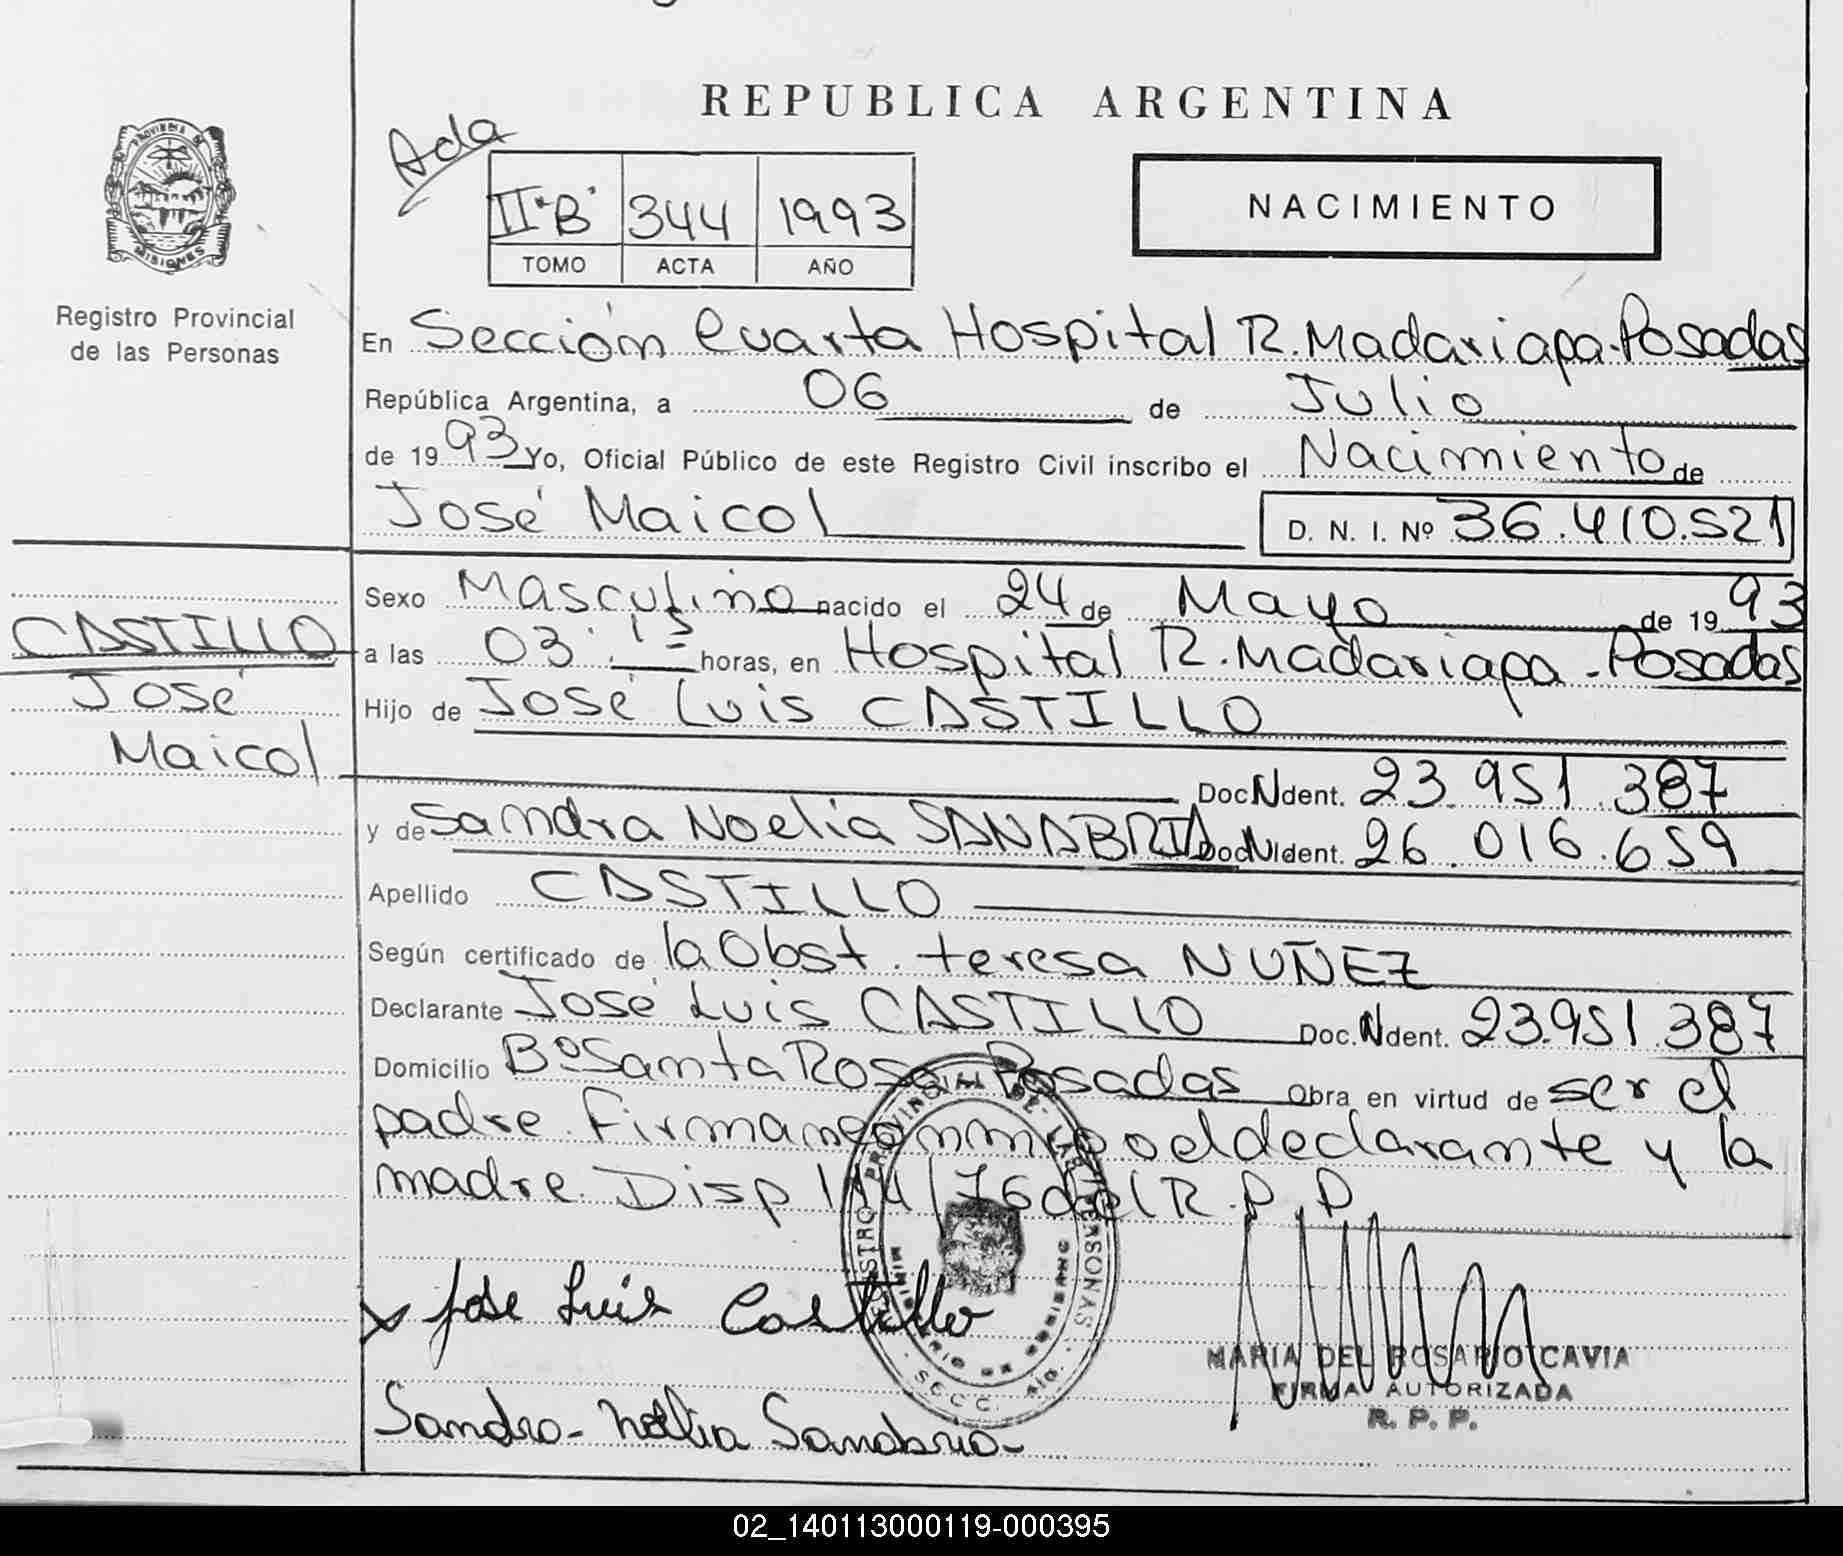 REPUBLICA ARGENTINA
Ada
PROVINCIA DE MISIONES
II "B" 344 1993
TOMO ACTA AÑO
NACIMIENTO
Registro Provincial
de las Personas
En Sección Cuarta Hospital R. Madariaga-Posadas
República Argentina, a 06 de Julio
de 1993 Yo, Oficial Público de este Registro Civil inscribo el Nacimiento de
José Maicol D. N. I. Nº 36.410.521
CASTILLO
José
Maicol
Sexo Masculino nacido el 24 de Mayo de 1993
a las 03:15 horas, en Hospital R. Madariaga - Posadas
Hijo de José Luis CASTILLO
Doc N Ident. 23.951.387
y de Sandra Noelia SANABRIA Doc N Ident. 26.016.659
Apellido CASTILLO
Según certificado de la Obst. teresa NUÑEZ
Declarante José Luis CASTILLO Doc. N Ident. 23.951.387
Domicilio Bº Santa Rosa Posadas Obra en virtud de ser el
padre. Firman conmigo el declarante y la
madre. Disp 114/76 del R.P.P
Jose Luis Castillo
REGISTRO PROVINCIAL DE LAS PERSONAS
MINISTERIO DE GOBIERNO
SECC. 4ta.
MARIA DEL ROSARIO CAVIA
FIRMA AUTORIZADA
R. P. P.
Sandra - Noelia Sanabria -
02_140113000119-000395